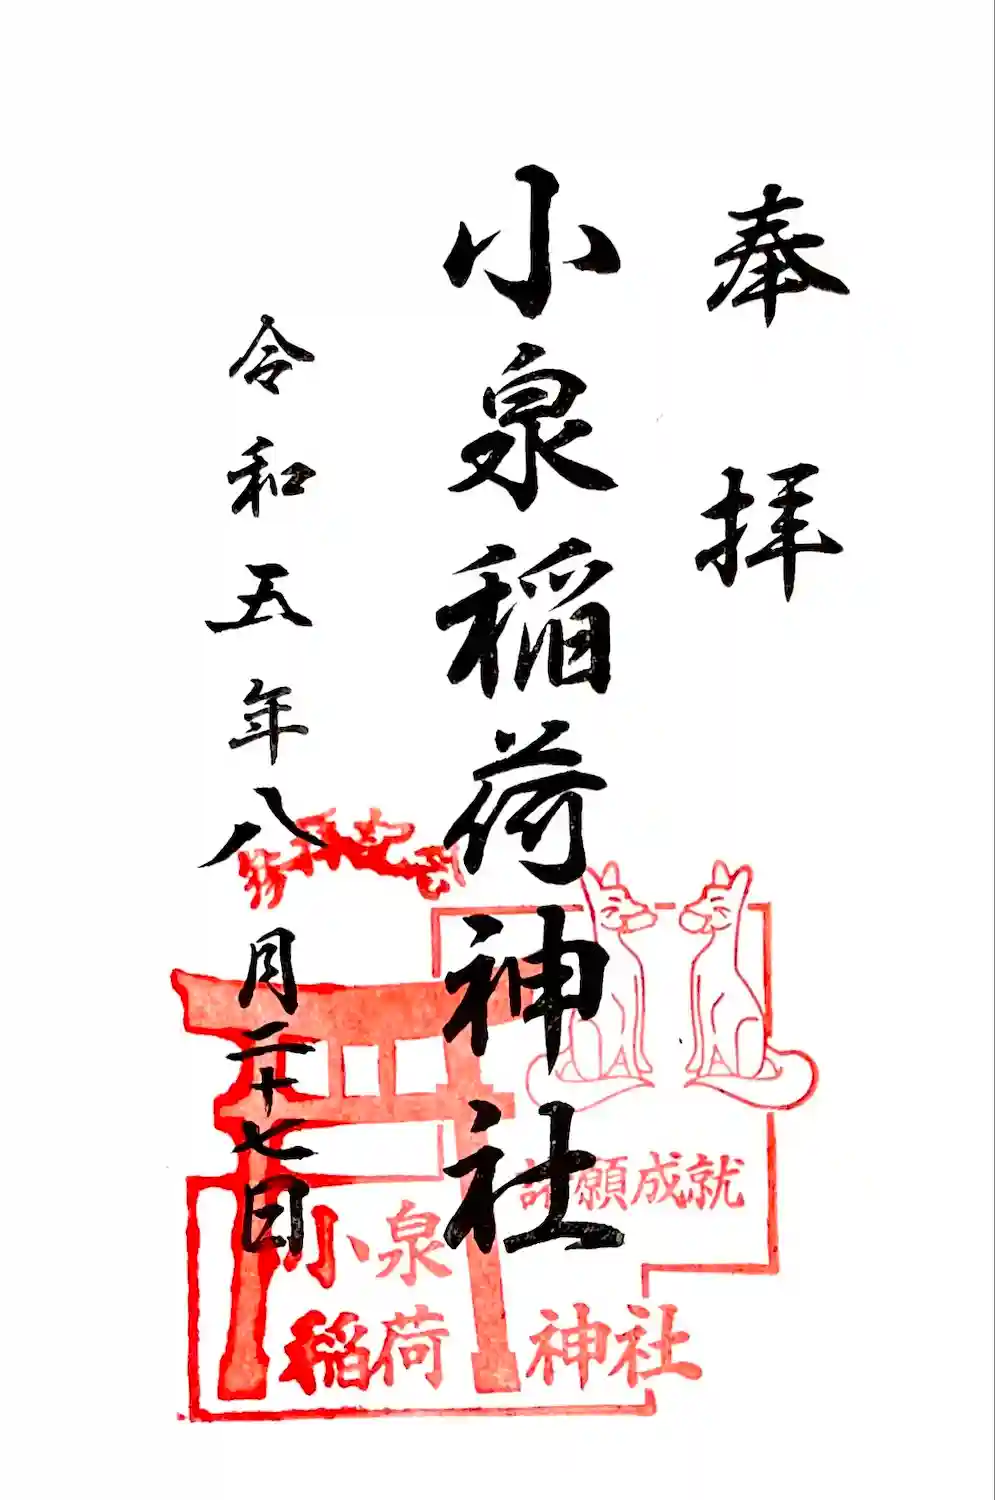 奉拝
小泉稲荷神社
令和五年八月二十七日
願成就
小泉
稲荷神社